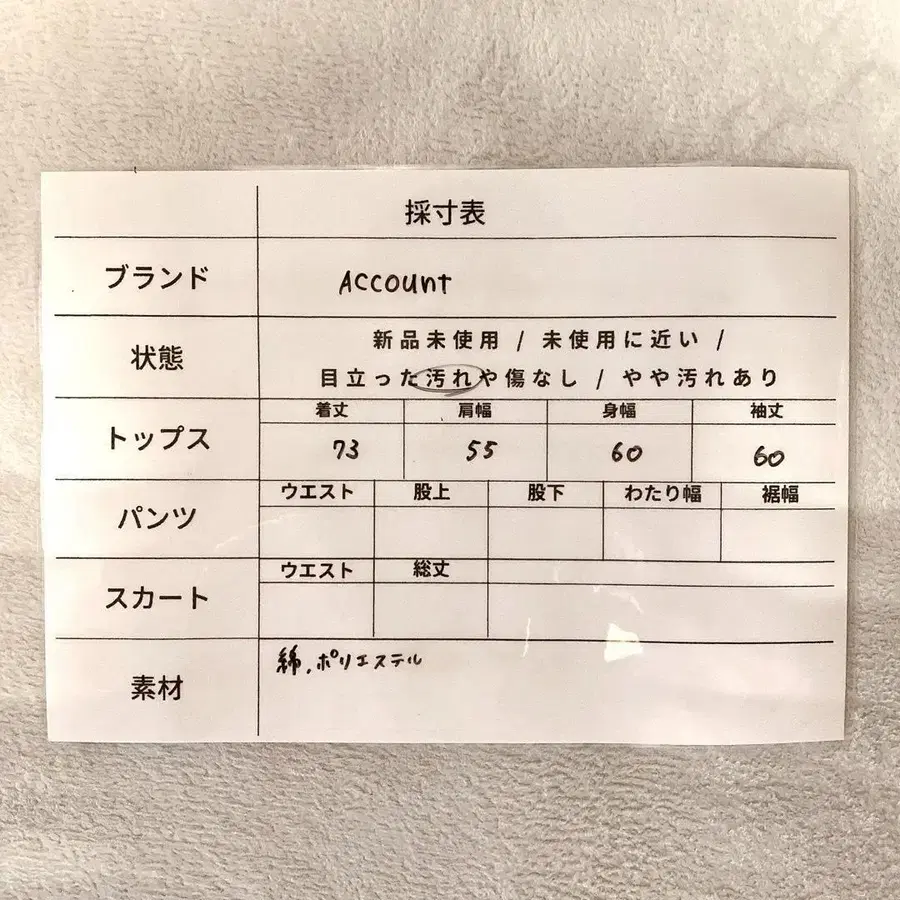 採寸表
ブランド Account
状態 新品未使用 / 未使用に近い /
目立った汚れや傷なし / やや汚れあり
トップス 着丈 肩幅 身幅 袖丈
73 55 60 60
パンツ ウエスト 股上 股下 わたり幅 裾幅
スカート ウエスト 総丈
素材 綿,ポリエステル